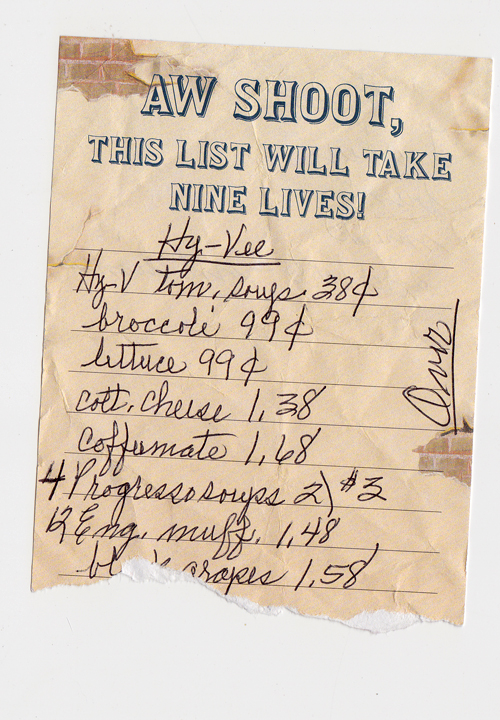 AW SHOOT,
THIS LIST WILL TAKE
NINE LIVES!
Hy-Vee
Hy-V tom. soups 38¢
broccoli 99¢
lettuce 99¢
cott. cheese 1.38
coffeemate 1.68
4 Progresso soups 2) $3
12 Eng. muff. 1.48
grapes 1.58